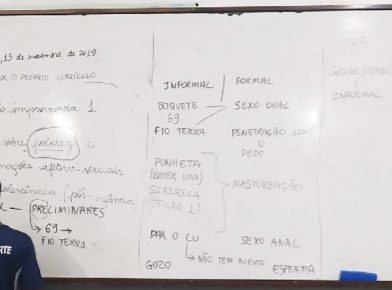 , 13 de novembro de 2019
R O PRÓPRIO CURRÍCULO
improvisada 1
sobre
afetivo-sexuais
PRELIMINARES
69 →
FIO TERRA
INFORMAL
FORMAL
BOQUETE
69
SEXO ORAL
FIO TERRA
PENETRAÇÃO COM
O
DEDO
PUNHETA
(BATER UMA)
SIRIRICA
TOCAR 1
MASTURBAÇÃO
DAR O CU
SEXO ANAL
NÃO TEM ACENTO
GOZO
ESPERMA
GOZAR
É
INFORMAL
RTE